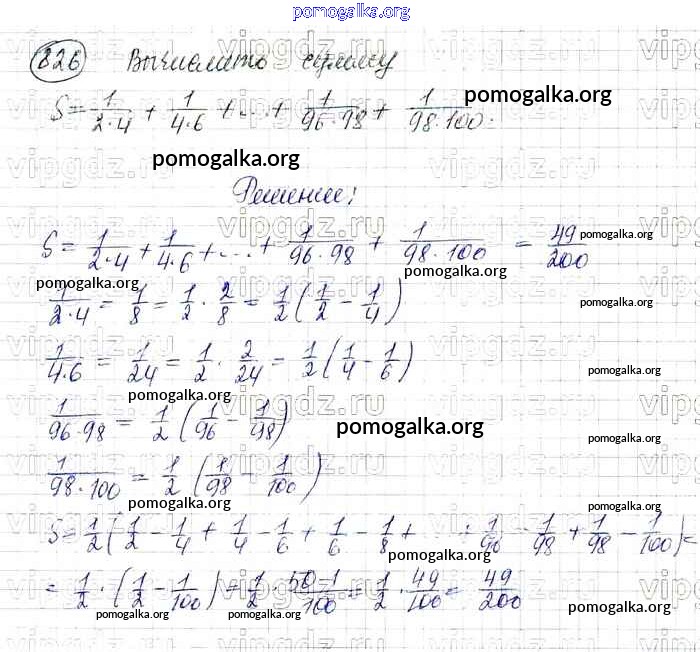 pomogalka.org
826 Вычислить сумму
S = 1/2·4 + 1/4·6 + ... + 1/96·98 + 1/98·100. pomogalka.org
pomogalka.org
Решение:
S = 1/2·4 + 1/4·6 + ... + 1/96·98 + 1/98·100 = 49/200
pomogalka.org pomogalka.org pomogalka.org
1/2·4 = 1/8 = 1/2 · 2/8 = 1/2 (1/2 - 1/4)
1/4·6 = 1/24 = 1/2 · 2/24 = 1/2 (1/4 - 1/6)
pomogalka.org pomogalka.org
1/96·98 = 1/2 (1/96 - 1/98) pomogalka.org
pomogalka.org
1/98·100 = 1/2 (1/98 - 1/100)
pomogalka.org pomogalka.org
S = 1/2 (1/2 - 1/4 + 1/4 - 1/6 + 1/6 - 1/8 + ... + 1/96 - 1/98 + 1/98 - 1/100) =
pomogalka.org
= 1/2 · (1/2 - 1/100) = 1/2 · 50-1/100 = 1/2 · 49/100 = 49/200
pomogalka.org pomogalka.org pomogalka.org